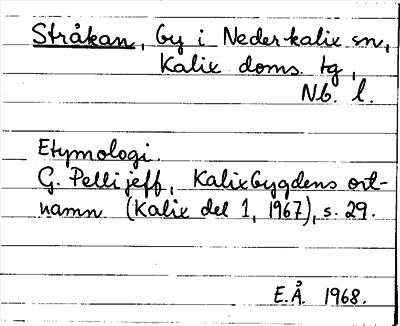 Stråkan, by i Nederkalix sn,
Kalix doms. tg,
Nb. l.
Etymologi.
G. Pellijeff, Kalixbygdens ort-
namn (Kalix del 1, 1967), s. 29.
E.Å. 1968.